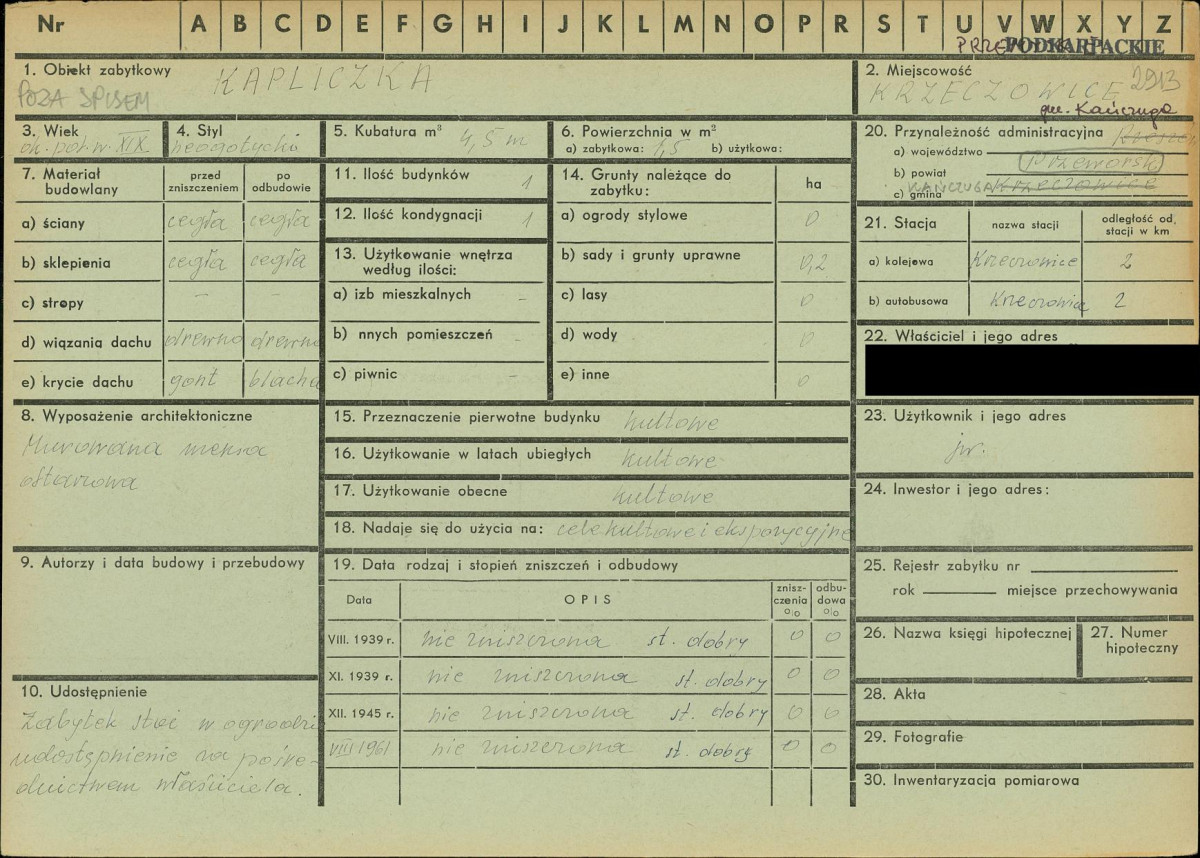 Nr A B C D E F G H I J K L M N O P R S T U V W X Y Z
PODKARPACKIE
1. Obiekt zabytkowy KAPLICZKA
POZA SPISEM
2. Miejscowość 2913
KRZECZOWICE
gm. Kańczuga
3. Wiek
ok. poł. w. XIX
4. Styl
neogotycki
5. Kubatura m³ 4,5 m
6. Powierzchnia w m²
a) zabytkowa: 1,5 b) użytkowa:
7. Materiał budowlany
przed zniszczeniem
po odbudowie
a) ściany cegła cegła
b) sklepienia cegła cegła
c) stropy - -
d) wiązania dachu drewno drewno
e) krycie dachu gont blacha
8. Wyposażenie architektoniczne
Murowana mensa
ołtarzowa
9. Autorzy i data budowy i przebudowy
10. Udostępnienie
Zabytek stoi w ogrodzie
udostępnienie za pośre-
dnictwem właściciela.
11. Ilość budynków 1
12. Ilość kondygnacji 1
13. Użytkowanie wnętrza
według ilości:
a) izb mieszkalnych -
b) nnych pomieszczeń -
c) piwnic -
14. Grunty należące do
zabytku: ha
a) ogrody stylowe 0
b) sady i grunty uprawne 0,2
c) lasy 0
d) wody 0
e) inne 0
15. Przeznaczenie pierwotne budynku kultowe
16. Użytkowanie w latach ubiegłych kultowe
17. Użytkowanie obecne kultowe
18. Nadaje się do użycia na: cele kultowe i ekspozycyjne
19. Data rodzaj i stopień zniszczeń i odbudowy
Data OPIS znisz-czenia % odbu-dowa %
VIII. 1939 r. nie zniszczona st. dobry 0 0
XI. 1939 r. nie zniszczona st. dobry 0 0
XII. 1945 r. nie zniszczona st. dobry 0 0
VIII 1961 nie zniszczona st. dobry 0 0
20. Przynależność administracyjna
a) województwo
b) powiat Przeworsk
c) gmina KAŃCZUGA Krzeczowice
21. Stacja nazwa stacji odległość od, stacji w km
a) kolejowa Krzeczowice 2
b) autobusowa Krzeczowice 2
22. Właściciel i jego adres
23. Użytkownik i jego adres
jw.
24. Inwestor i jego adres:
25. Rejestr zabytku nr
rok miejsce przechowywania
26. Nazwa księgi hipotecznej
27. Numer hipoteczny
28. Akta
29. Fotografie
30. Inwentaryzacja pomiarowa